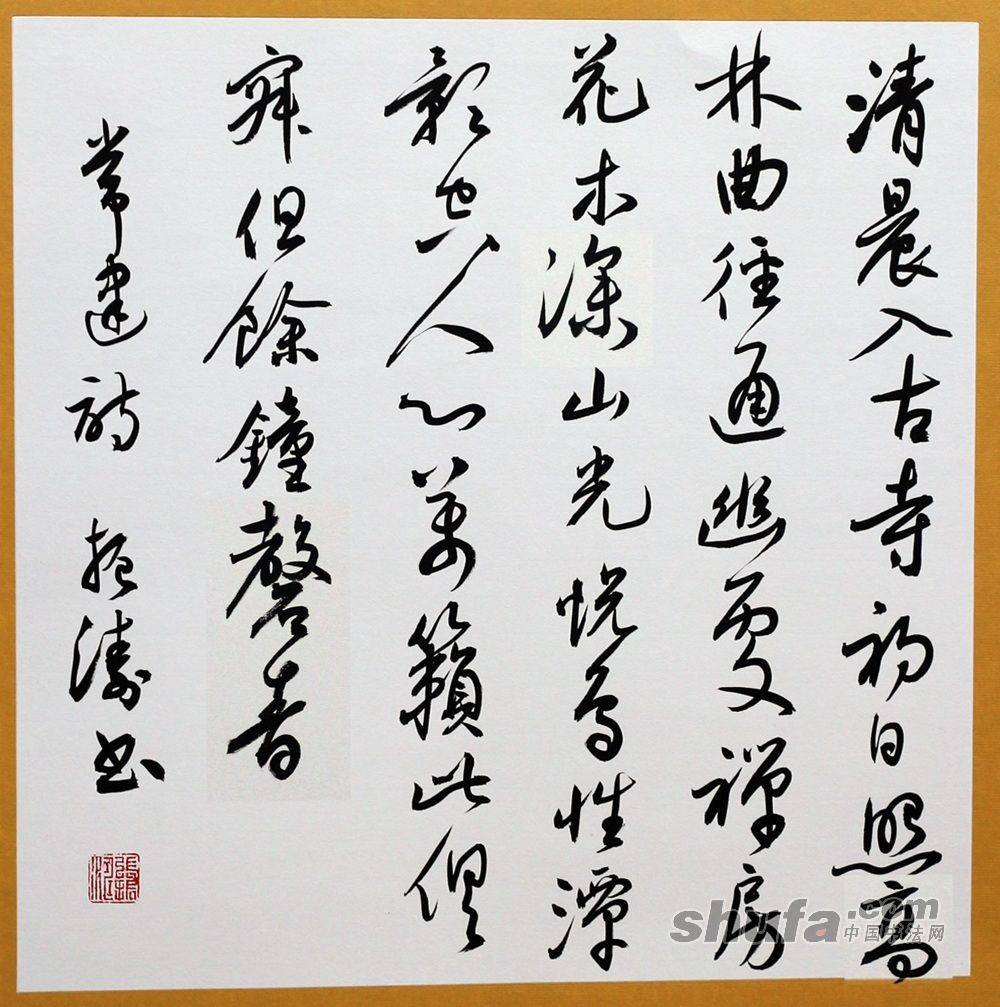 清晨入古寺初日照高
林曲徑通幽處禪房
花木深山光悦鳥性潭
影空人心萬籟此俱
寂但餘鐘磬音
常建詩 振濤書
shufa.com
中国书法网